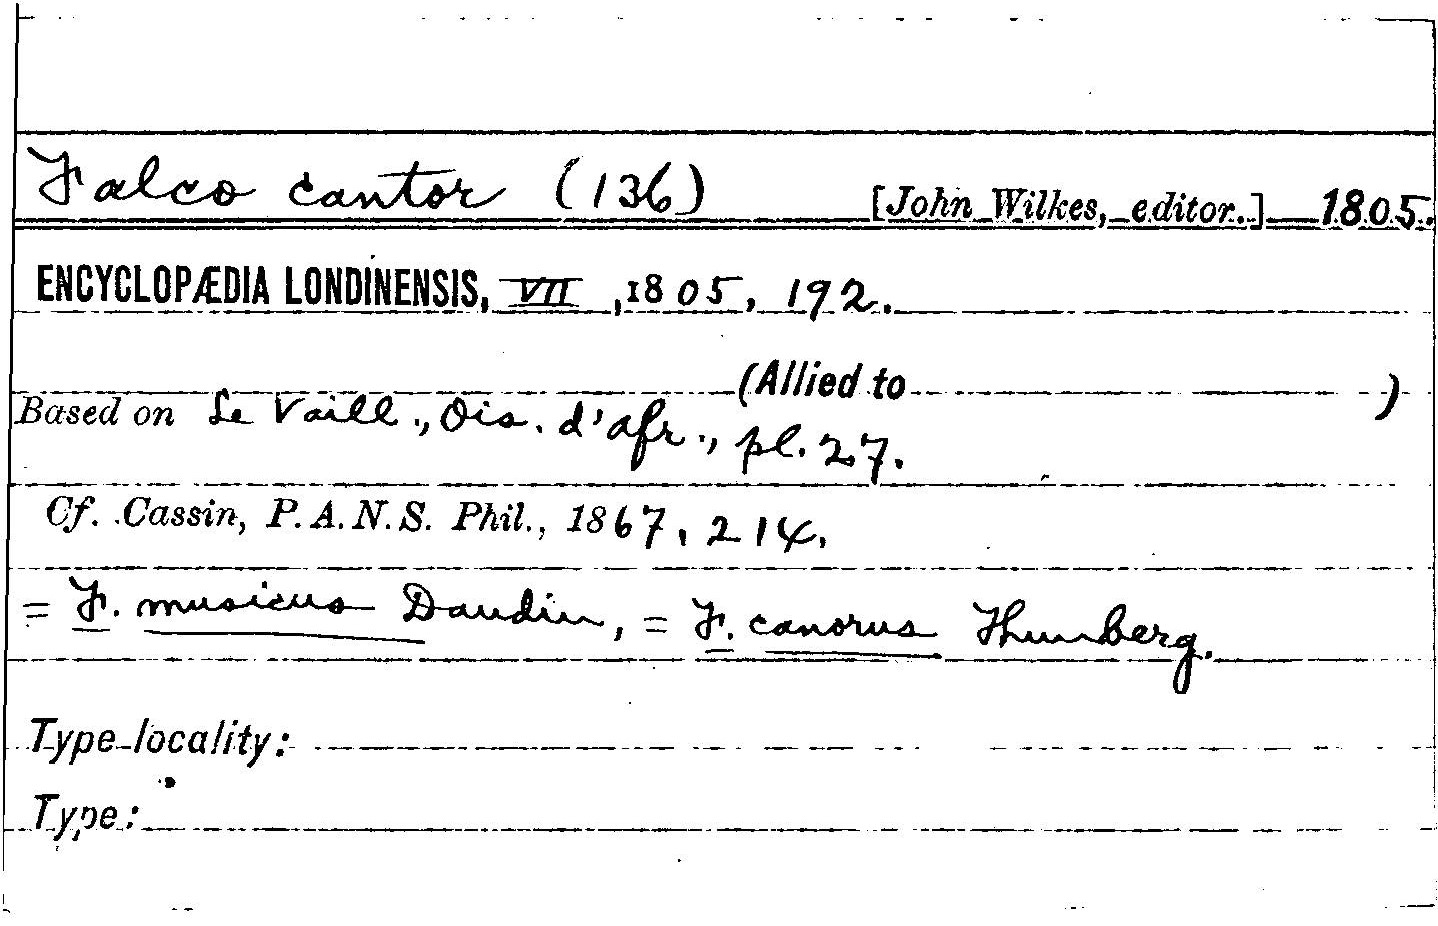 Falco cantor (136) [John Wilkes, editor.] 1805.
ENCYCLOPÆDIA LONDINENSIS, VII, 1805, 192.
(Allied to )
Based on Le Vaill., Ois. d'afr., pl. 27.
Cf. Cassin, P. A. N. S. Phil., 1867, 214.
= F. musicus Daudin, = F. canorus Thunberg.
Type locality:
Type: